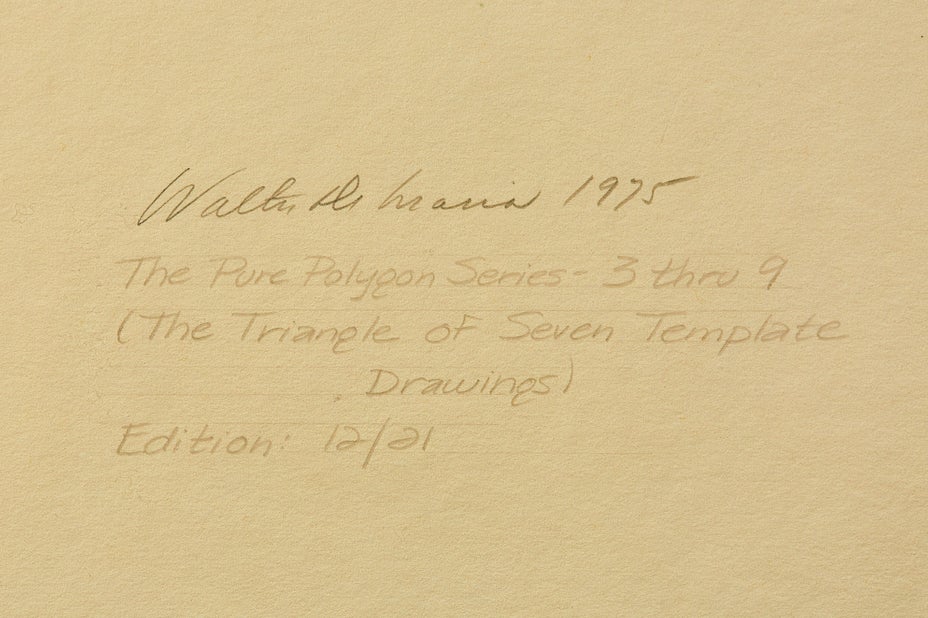 Walter De Maria 1975
The Pure Polygon Series - 3 thru 9
(The Triangle of Seven Template
Drawings)
Edition: 12/21